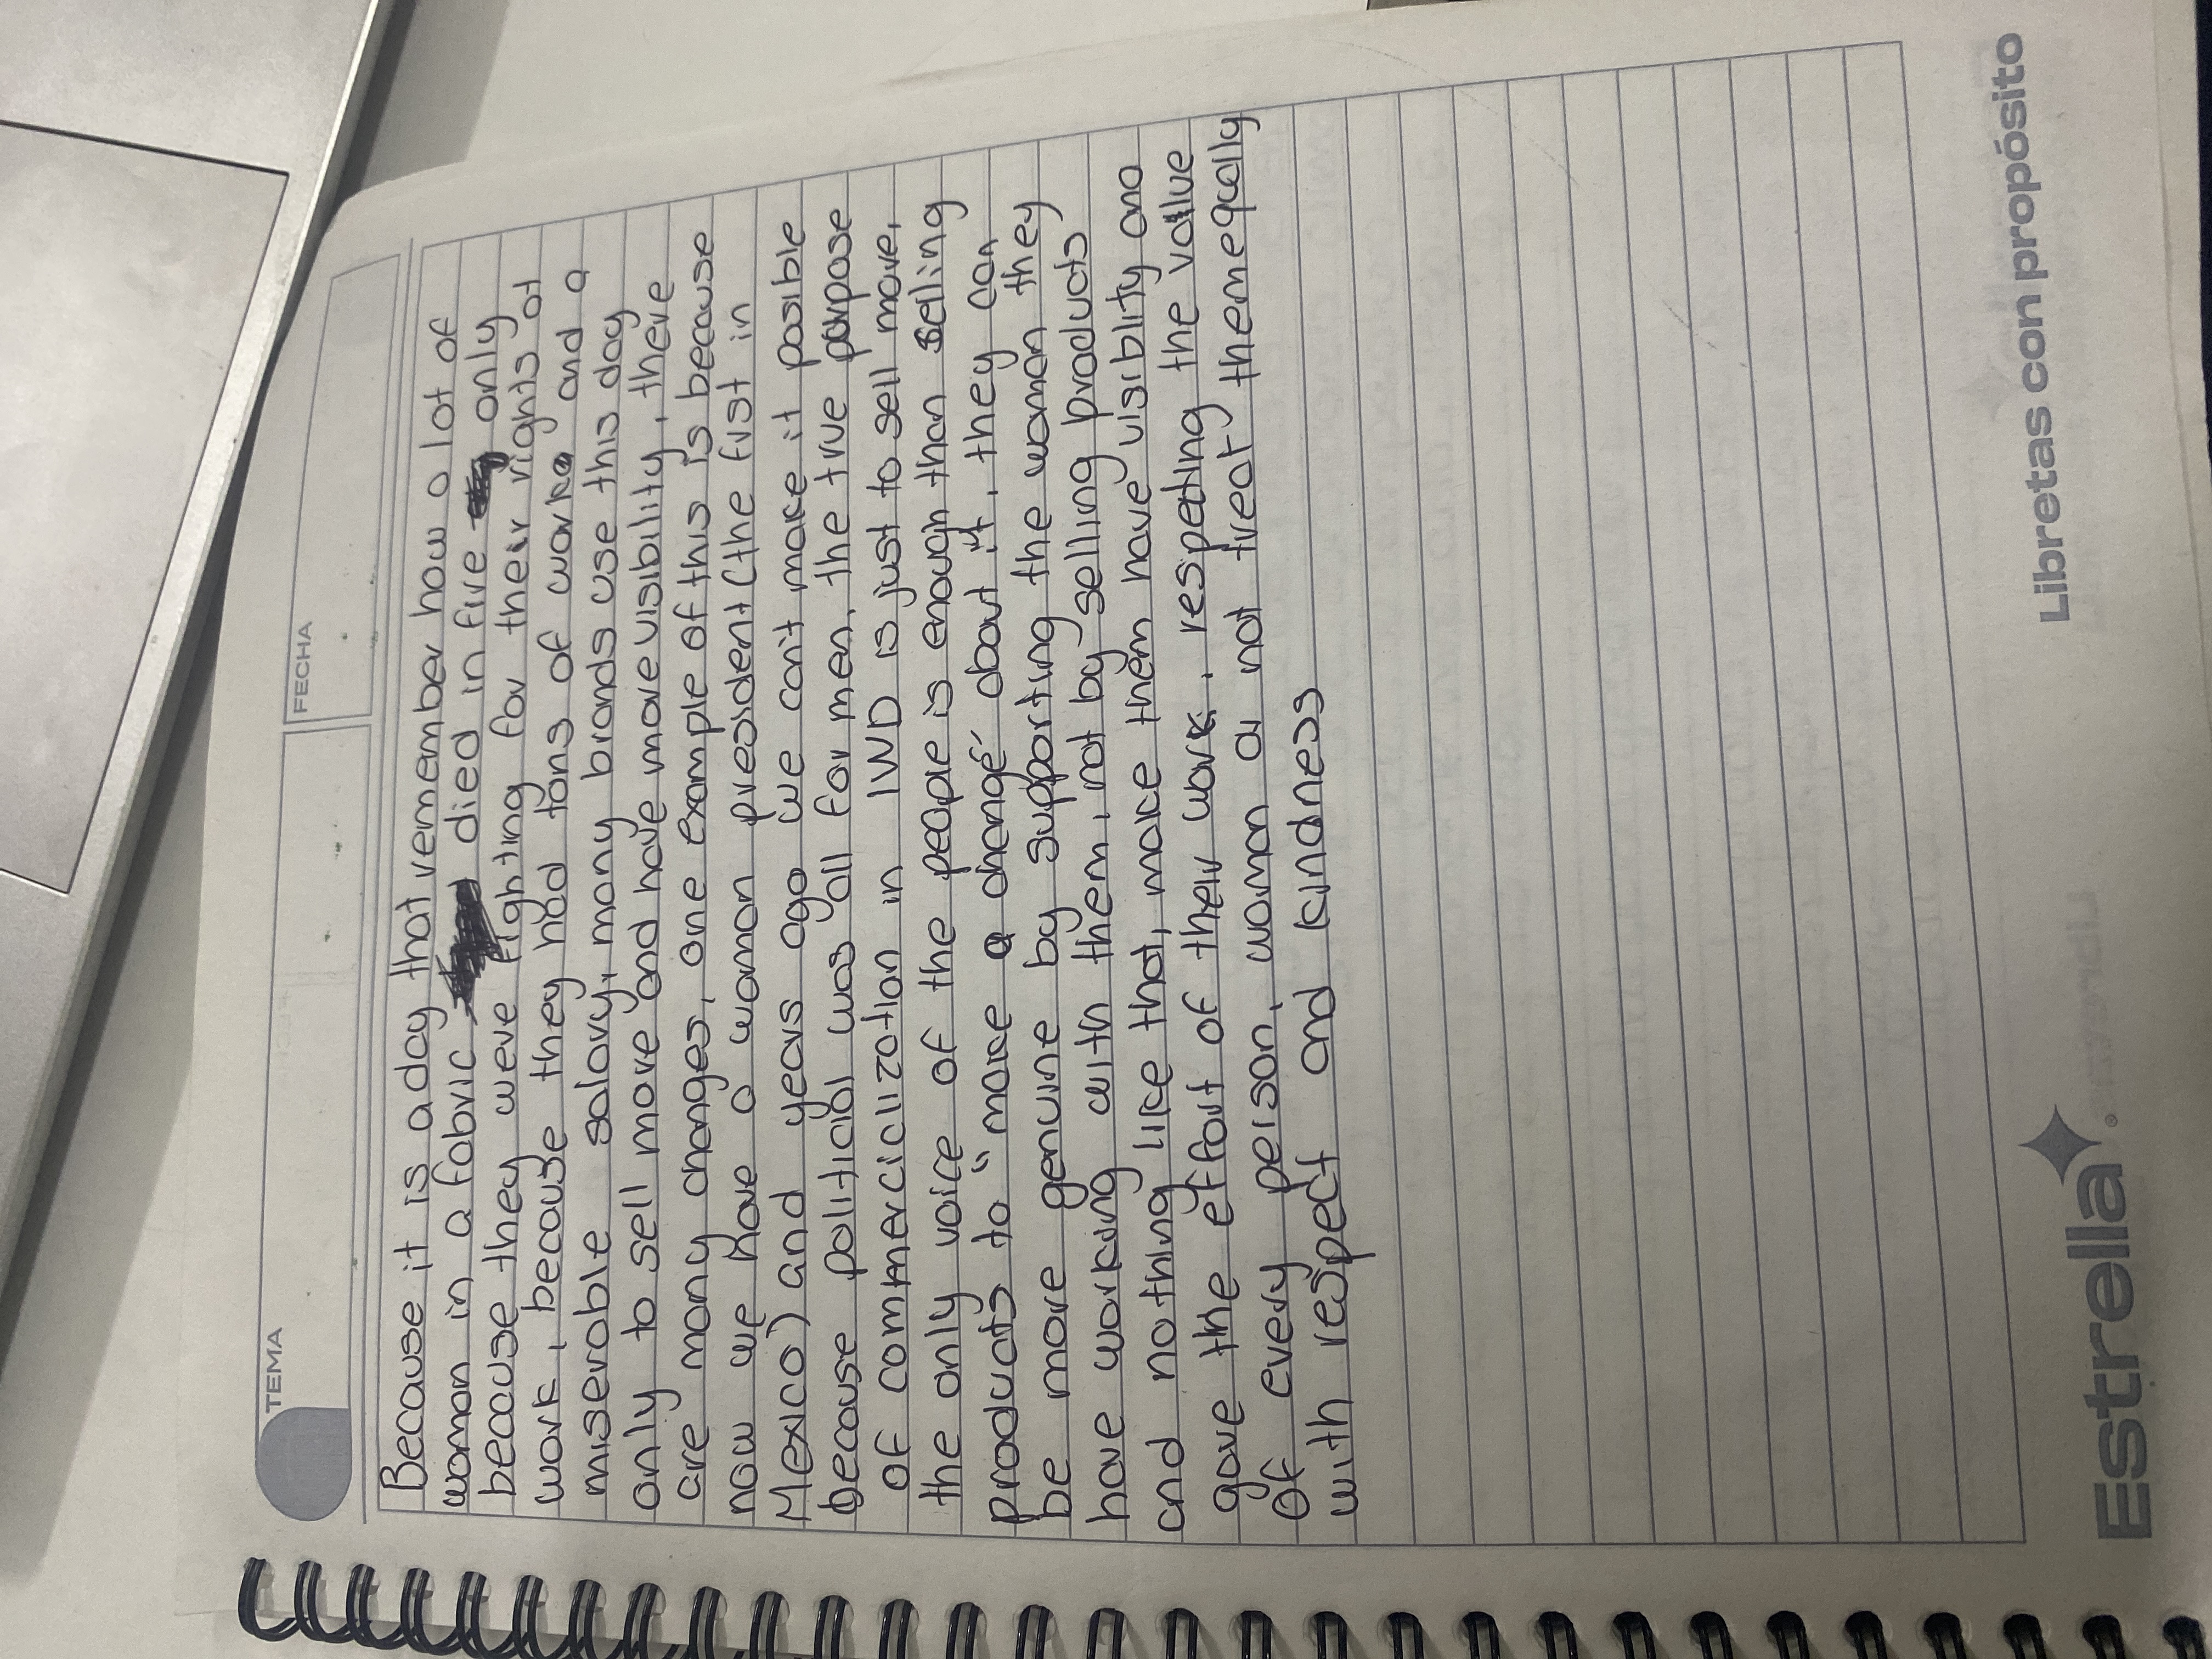 TEMA
FECHA
Because it is a day that remember how a lot of
woman in a fabric died in fire only
because they were fighting for their rights at
work, because they had tons of work and a
miserable salary, many brands use this day
only to sell more and have more visibility, there
are many changes, one example of this is because
now we have a woman president (the first in
Mexico) and years ago we can't make it posible
because politicial was all for men, the true purpose
of commerciclization in IWD is just to sell more,
the only voice of the people is enough than selling
products to "make a change" about it, they can
be more genuine by supporting the woman they
have working with them, not by selling products
and nothing like that, make them have visiblity and
gave the effort of their work, respeting the value
of every person, woman or not treat themeqally
with respect and kindness
Estrella
Libretas con propósito